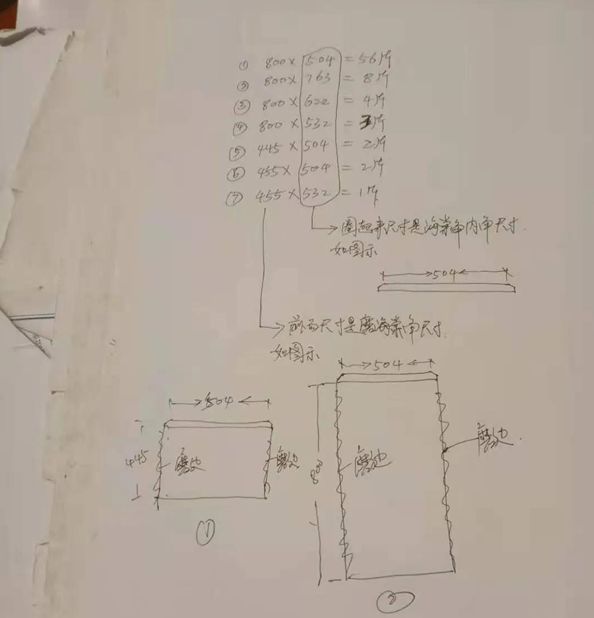 ① 800×504=56片
② 800×763=8片
③ 800×622=4片
④ 800×532=3片
⑤ 445×504=2片
⑥ 455×504=2片
⑦ 455×532=1片
圈起来尺寸是海棠角内角尺寸
如图示
504
前面尺寸是磨海棠角尺寸
如图示
504
504
445
磨边
磨边
800
磨边
磨边
①
②